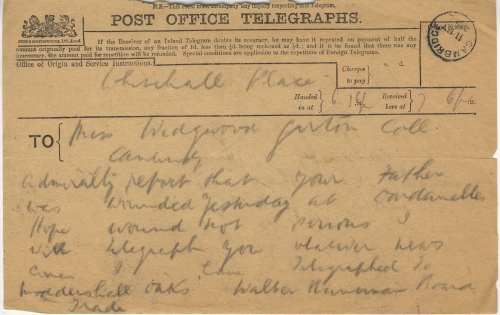 N.B.—This Form must accompany any inquiry respecting this Telegram.
POST OFFICE TELEGRAPHS.
If the Receiver of an Inland Telegram doubts its accuracy, he may have it repeated on payment of half the
amount originally paid for its transmission, any fraction of 1d. less than ½d. being reckoned as ½d.; and if it be found that there was any
inaccuracy, the amount paid for repetition will be refunded. Special conditions are applicable to the repetition of Foreign Telegrams.
Office of Origin and Service Instructions.
Charges to pay
s. d.
Place
Handed in at
6.
Received here at
7
CAMBRIDGE
TO
Miss Wedgwood Girton Coll
Cambridge
Admiralty report that your Father
was wounded yesterday at Dardanelles
Hope wound not serious I
will telegraph you whatever news
comes I have Telegraphed to
Moddershall Oaks Walter Runciman Board
Trade